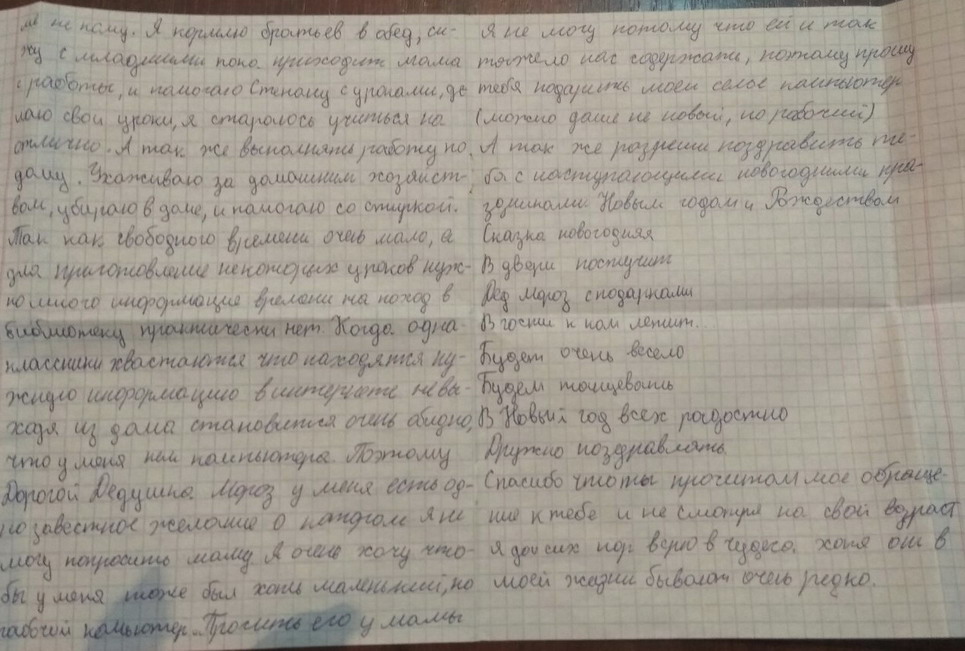 не кому. Я кормлю братьев в обед, си-
жу с младшими пока приходит мама
с работы, и помогаю Степану с уроками, де
лаю свои уроки, я стараюсь учиться на
отлично. А так же выполнять работу по
дому. Ухаживаю за домашним хозяйст-
вом, убираю в доме, и помогаю со стиркой.
Так как свободного времени очень мало, а
для приготовление некоторых уроков нуж-
но много информацие времени на поход в
библиотеку практически нет. Когда одна-
классники хвастаются что находятся ну-
жную информацию в интернете не вы-
ходя из дома становится очень обидно,
что у меня нет компьютера. Поэтому
Дорогой Дедушка Мороз у меня есть од-
но заветное желание о котором я не
могу попросить маму. Я очень хочу что-
бы у меня тоже был хоть маленький, но
рабочий компьютер. Просить его у мамы
Я не могу потому что ей и так
тяжело нас содержать, поэтому прошу
тебя подарить моей семье компьютер
(можно даже не новый, но рабочий)
А так же разреши поздравить те-
бя с наступающими новогодними праз-
дниками Новым годом и Рождеством
Сказка новогодняя
В двери постучит
Дед Мороз с подарками
В гости к нам летит.
Будет очень весело
Будем танцевать
В Новый год всех радостно
Дружно поздравлять.
Спасибо что ты прочитал мое обраще-
ние к тебе и не смотря на свой возраст
я до сих пор верю в чудеса. хотя они в
моей жизни бывают очень редко.